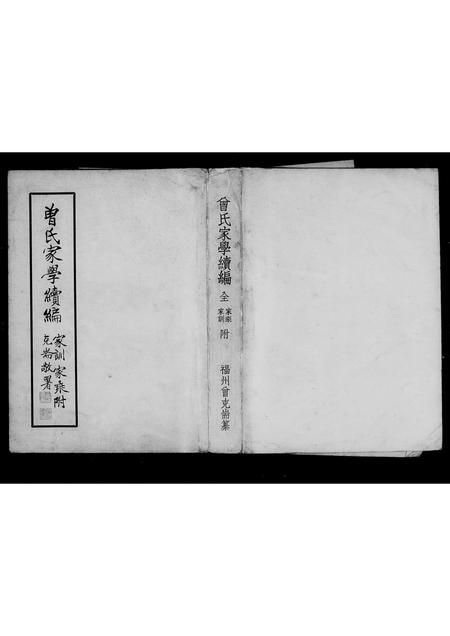 曾氏家學續編
家訓 家乘附
克耑敬署
曾氏家學續編 全 家乘 家訓 附 福州曾克耑纂